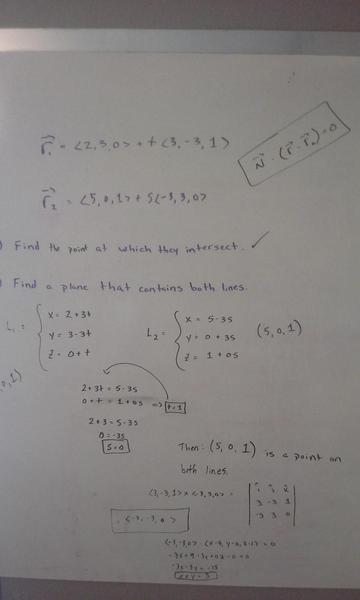 r⃗₁ = <2,3,0> + t<3,-3,1>
N⃗ · (r⃗ - r⃗₀) = 0
r⃗₂ = <5,0,1> + s<-3,3,0>
) Find the point at which they intersect. ✓
) Find a plane that contains both lines.
L₁ = { x = 2+3t
y = 3-3t
z = 0+t
L₂ = { x = 5-3s
y = 0+3s
z = 1+0s
(5,0,1)
0,1)
2+3t = 5-3s
0+t = 1+0s => t=1
2+3 = 5-3s
0 = -3s
s=0
Then: (5,0,1) is a point on
both lines.
<3,-3,1> x <-3,3,0> =
| î ĵ k̂ |
| 3 -3 1 |
| -3 3 0 |
<-3,-3,0>
x+y = 5